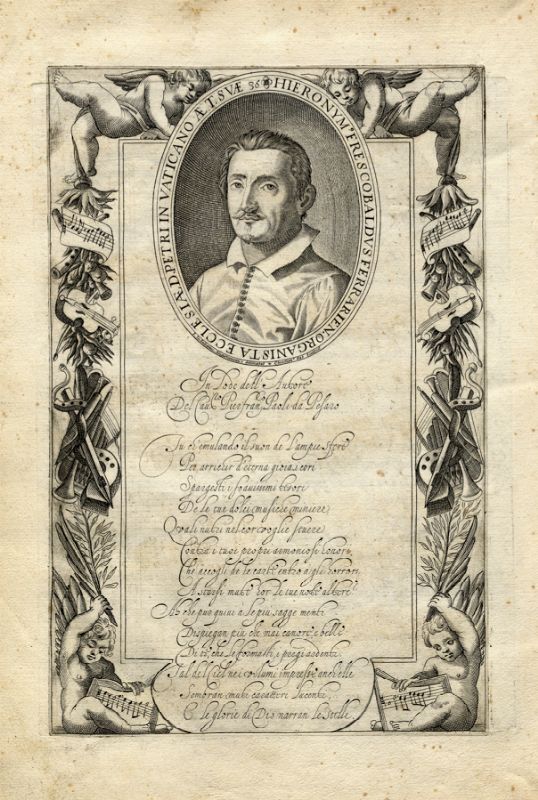 HIERONYM⁹ FRESCOBALDVS FERRARIEN. ORGANISTA ECCLESIÆ D. PETRI IN VATICANO ÆT. SVÆ 36
In Lode dell' Autore
Del Pierfran. Paoli da Pesaro
Tu ch' emulando il suon de l'ampie sfere
Per arrichir d'eterna gioia i cori
Spargesti i soauissimi tesori
De le tue dolci musiche miniere
Quali nutri nel cor voglie seuere
Contra i tuoi propri armoniosi honori
Che accogli de le carte entro a gli horrori
A starsi mute hor le tue note altere
Ah che pur quiui a le più sagge menti
Dispiegan più che mai canore, e belle
Di te, che le formasti, i pregi ardenti
Tal del Ciel nei volumi impresse anch'elle
Sembran muti caratteri lucenti,
E le glorie di Dio narran le Stelle.